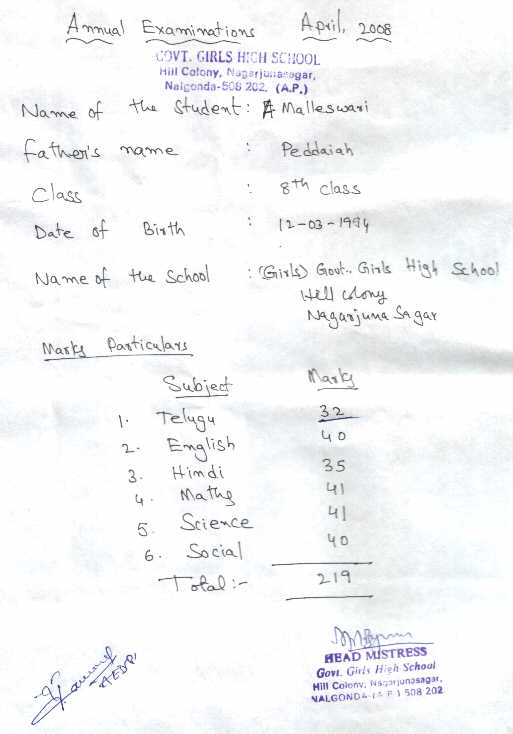 Annual Examinations April, 2008
GOVT. GIRLS HIGH SCHOOL
Hill Colony, Nagarjunasagar,
Nalgonda-508 202. (A.P.)
Name of the Student: A Malleswari
Father's name : Peddaiah
Class : 8th class
Date of Birth : 12-03-1994
Name of the School : (Girls) Govt.. Girls High School
Hill colony
Nagarjuna Sagar
Marks Particulars
Subject Marks
1. Telugu 32
2. English 40
3. Hindi 35
4. Maths 41
5. Science 41
6. Social 40
Total:- 219
HEAD MISTRESS
Govt. Girls High School
Hill Colony, Nagarjunasagar,
NALGONDA (A.P.) 508 202